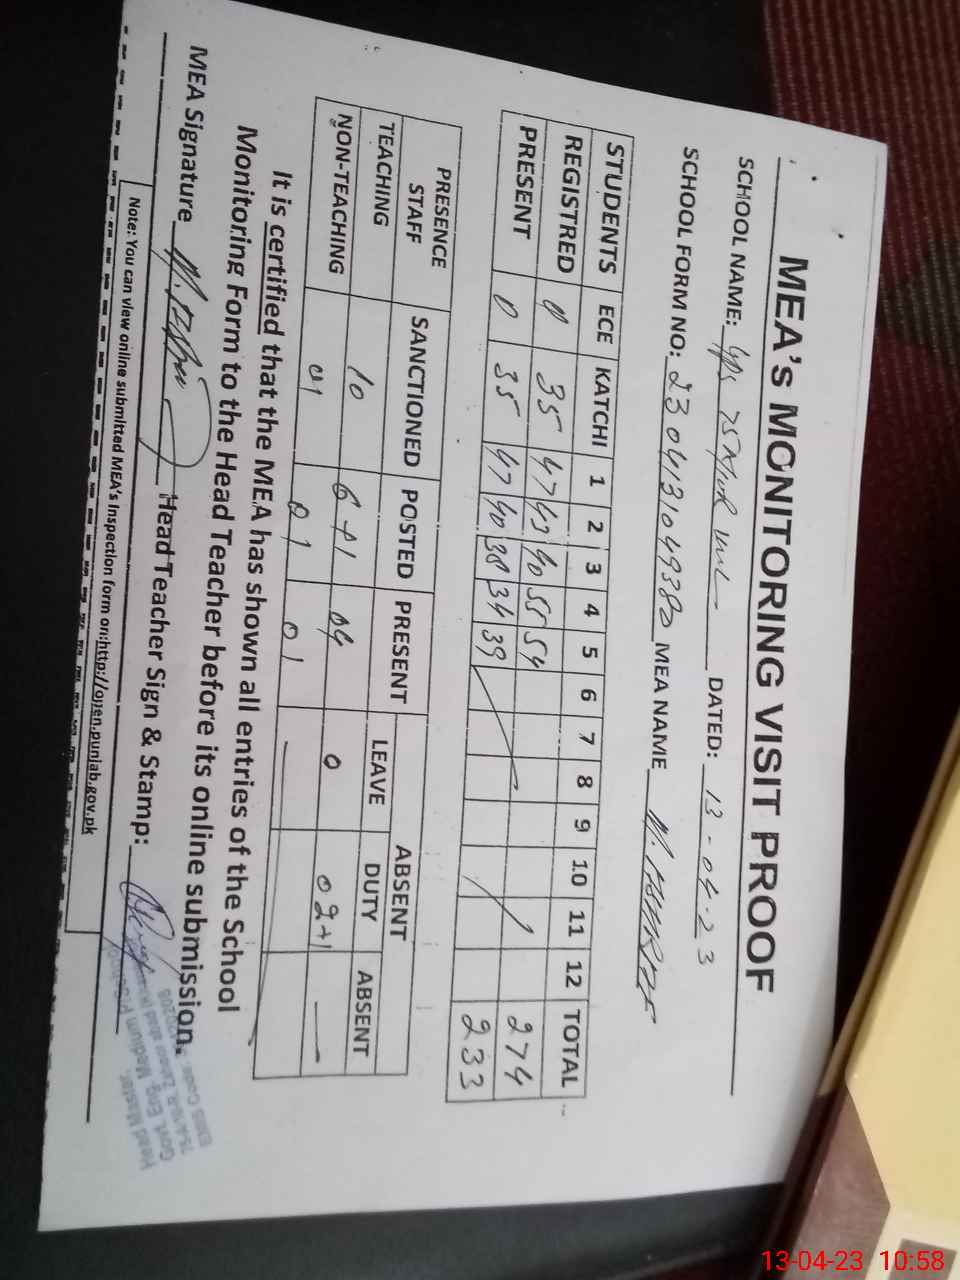 MEA's MONITORING VISIT PROOF
SCHOOL NAME: GPS 75 DATED: 13-04-23
SCHOOL FORM NO: MEA NAME
STUDENTS ECE KATCHI 1 2 3 4 5 6 7 8 9 10 11 12 TOTAL
REGISTRED 0 35 47 43 40 55 54 274
PRESENT 0 35 47 40 38 34 39 233
PRESENCE STAFF SANCTIONED POSTED PRESENT ABSENT
LEAVE DUTY ABSENT
TEACHING 10 6+1 04 0 02+1 —
NON-TEACHING 01 01 01 —
It is certified that the MEA has shown all entries of the School
Monitoring Form to the Head Teacher before its online submission.
MEA Signature Head Teacher Sign & Stamp:
Head Master,
Govt. Eng. Medium
EMIS Code:
Note: You can view online submitted MEA's Inspection form on:http://open.punjab.gov.pk
13-04-23 10:58